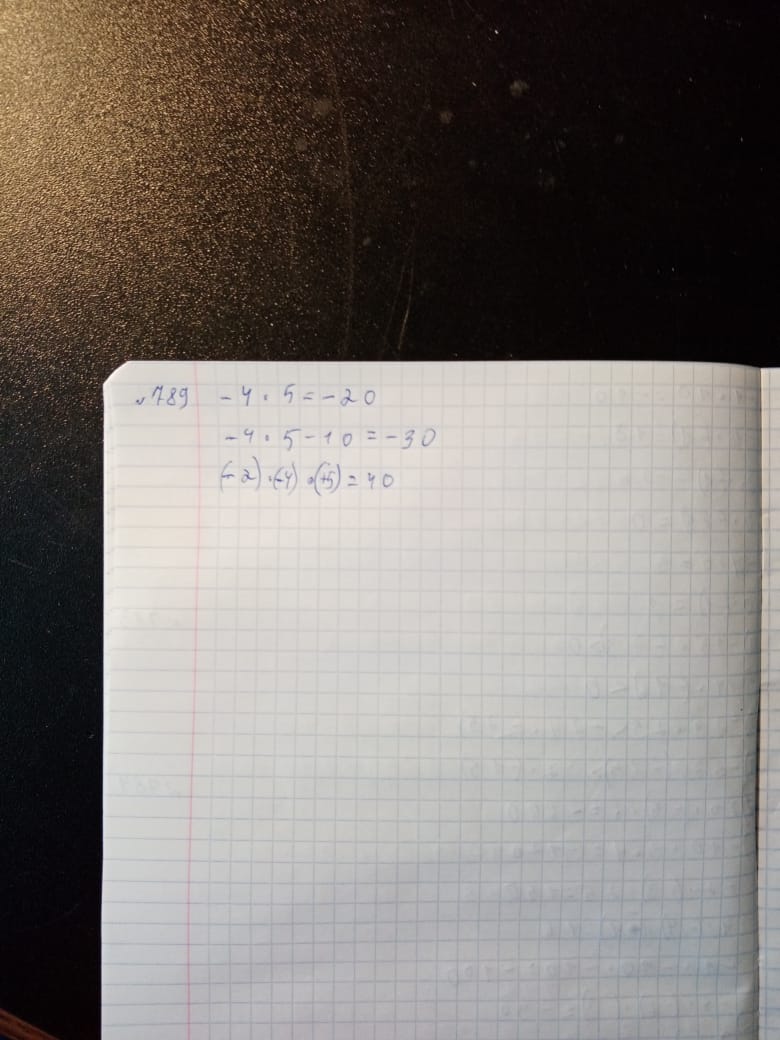 №789 -4 · 5 = -20
-4 · 5 - 10 = -30
(-2) · (-4) · (+5) = 40